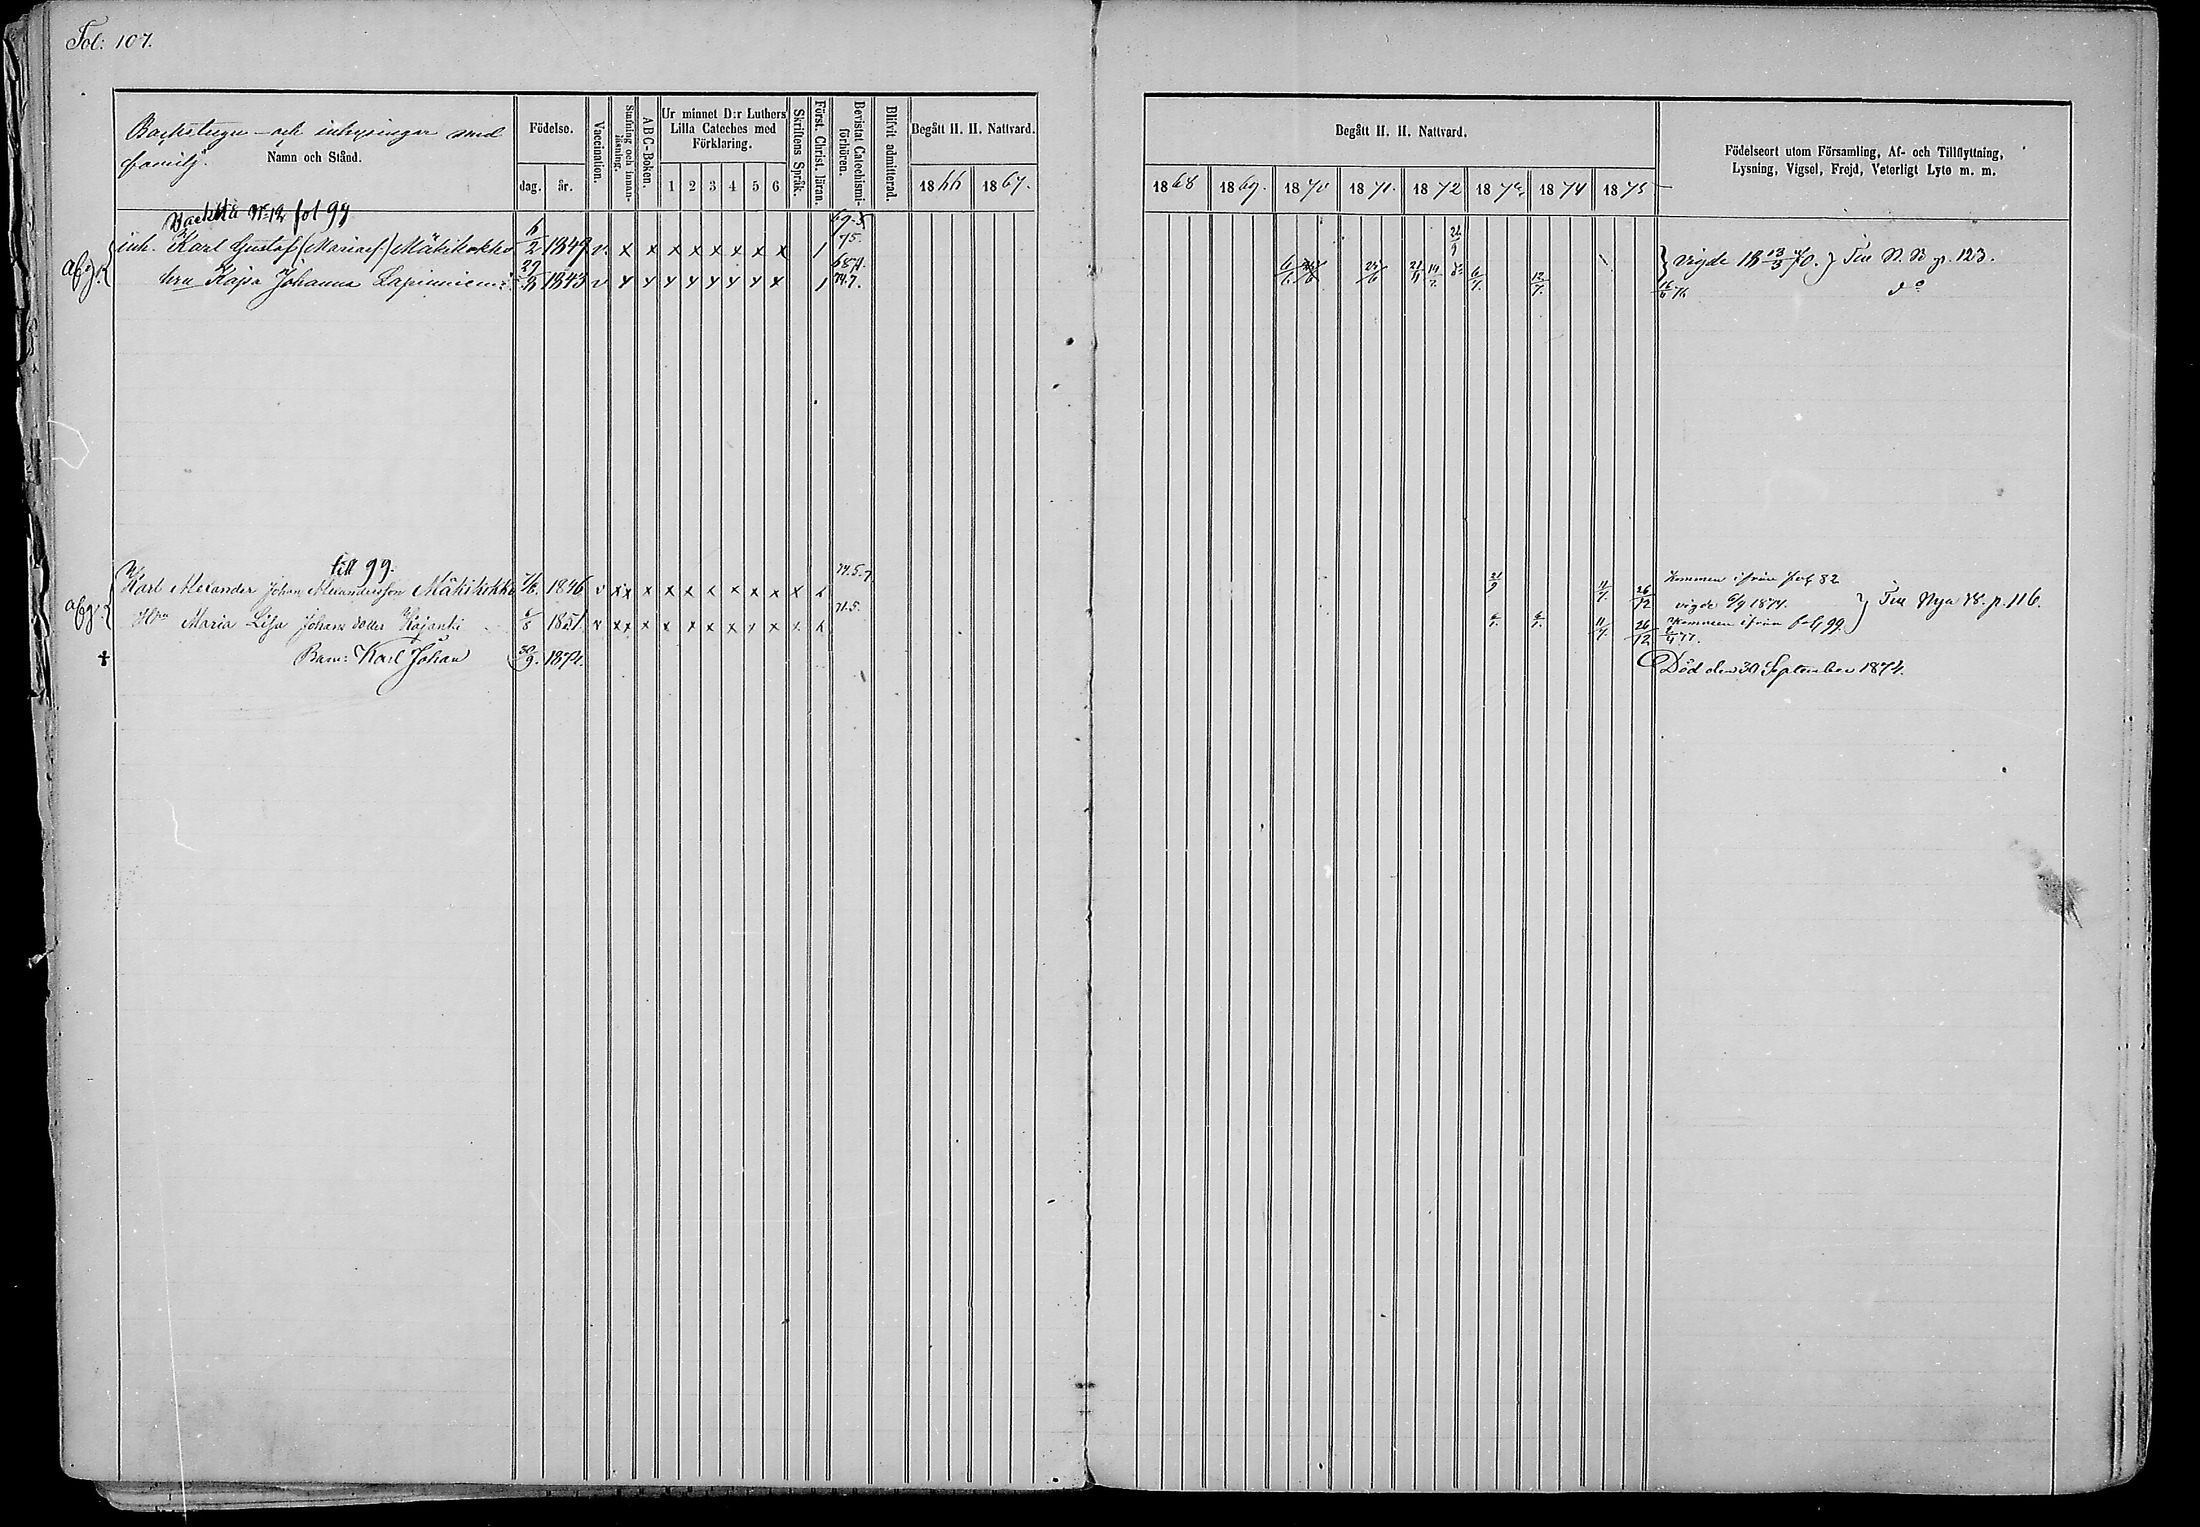 Fol: 107.
Backstugu- och inhysingar med
familj.
Namn och Stånd.
Födelse.
dag. år.
Vaccination.
Stafning och innanläsning.
A B C-Boken.
Ur minnet D:r Luthers
Lilla Cateches med
Förklaring.
1 2 3 4 5 6
Skriftens Språk.
Först. Christ. läran.
Bevistat Catechismiförhören.
Blifvit admitterad.
Begått H. H. Nattvard.
1866 1867.
Begått H. H. Nattvard.
1868 1869. 1870 1871. 1872 1873 1874 1875
Födelseort utom Församling, Af- och Tillflyttning,
Lysning, Vigsel, Frejd, Veterligt Lyte m. m.
N:12 fol 99
inh. Karl Gustaf (Mariaef.) Mäkikokko 6/2 1849 v. x x x x x x x x 1 69-5 75. 21/9 vigde 18 13/3 70. } Till N. B. p. 123.
hru Kajsa Johanna Lapinniemi 29/8 1843 v 1 6871. 74.7. 6/6 6/7 12/7 16/6 76 d:o
afg.
till 99.
Karl Alexander Johan Alexandersson Mäkikokko 7/6. 1846 v x x x x x x x x x x 74.5.7 21/9 11/7. 26/12 Kommen ifrån fol 82
vigde 6/9 1874. } Till Nya B. p. 116.
afg.
Hru Maria Lisa Johans dotter Kajanti 6/8 1851. v x x x x x x x x x x 71.5. 11/7 26/12 Kommen ifrån fol. 99
77.
† Barn: Karl Johan 30/9. 1874. Död den 30 September 1874.